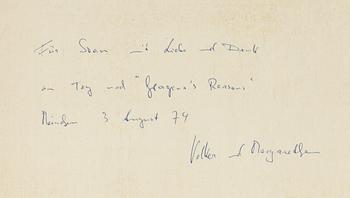 Für Sven mit Liebe und Dank
am Tag nach "Georgina's Reasons"
München 3 August 74
Volker und Margarethe